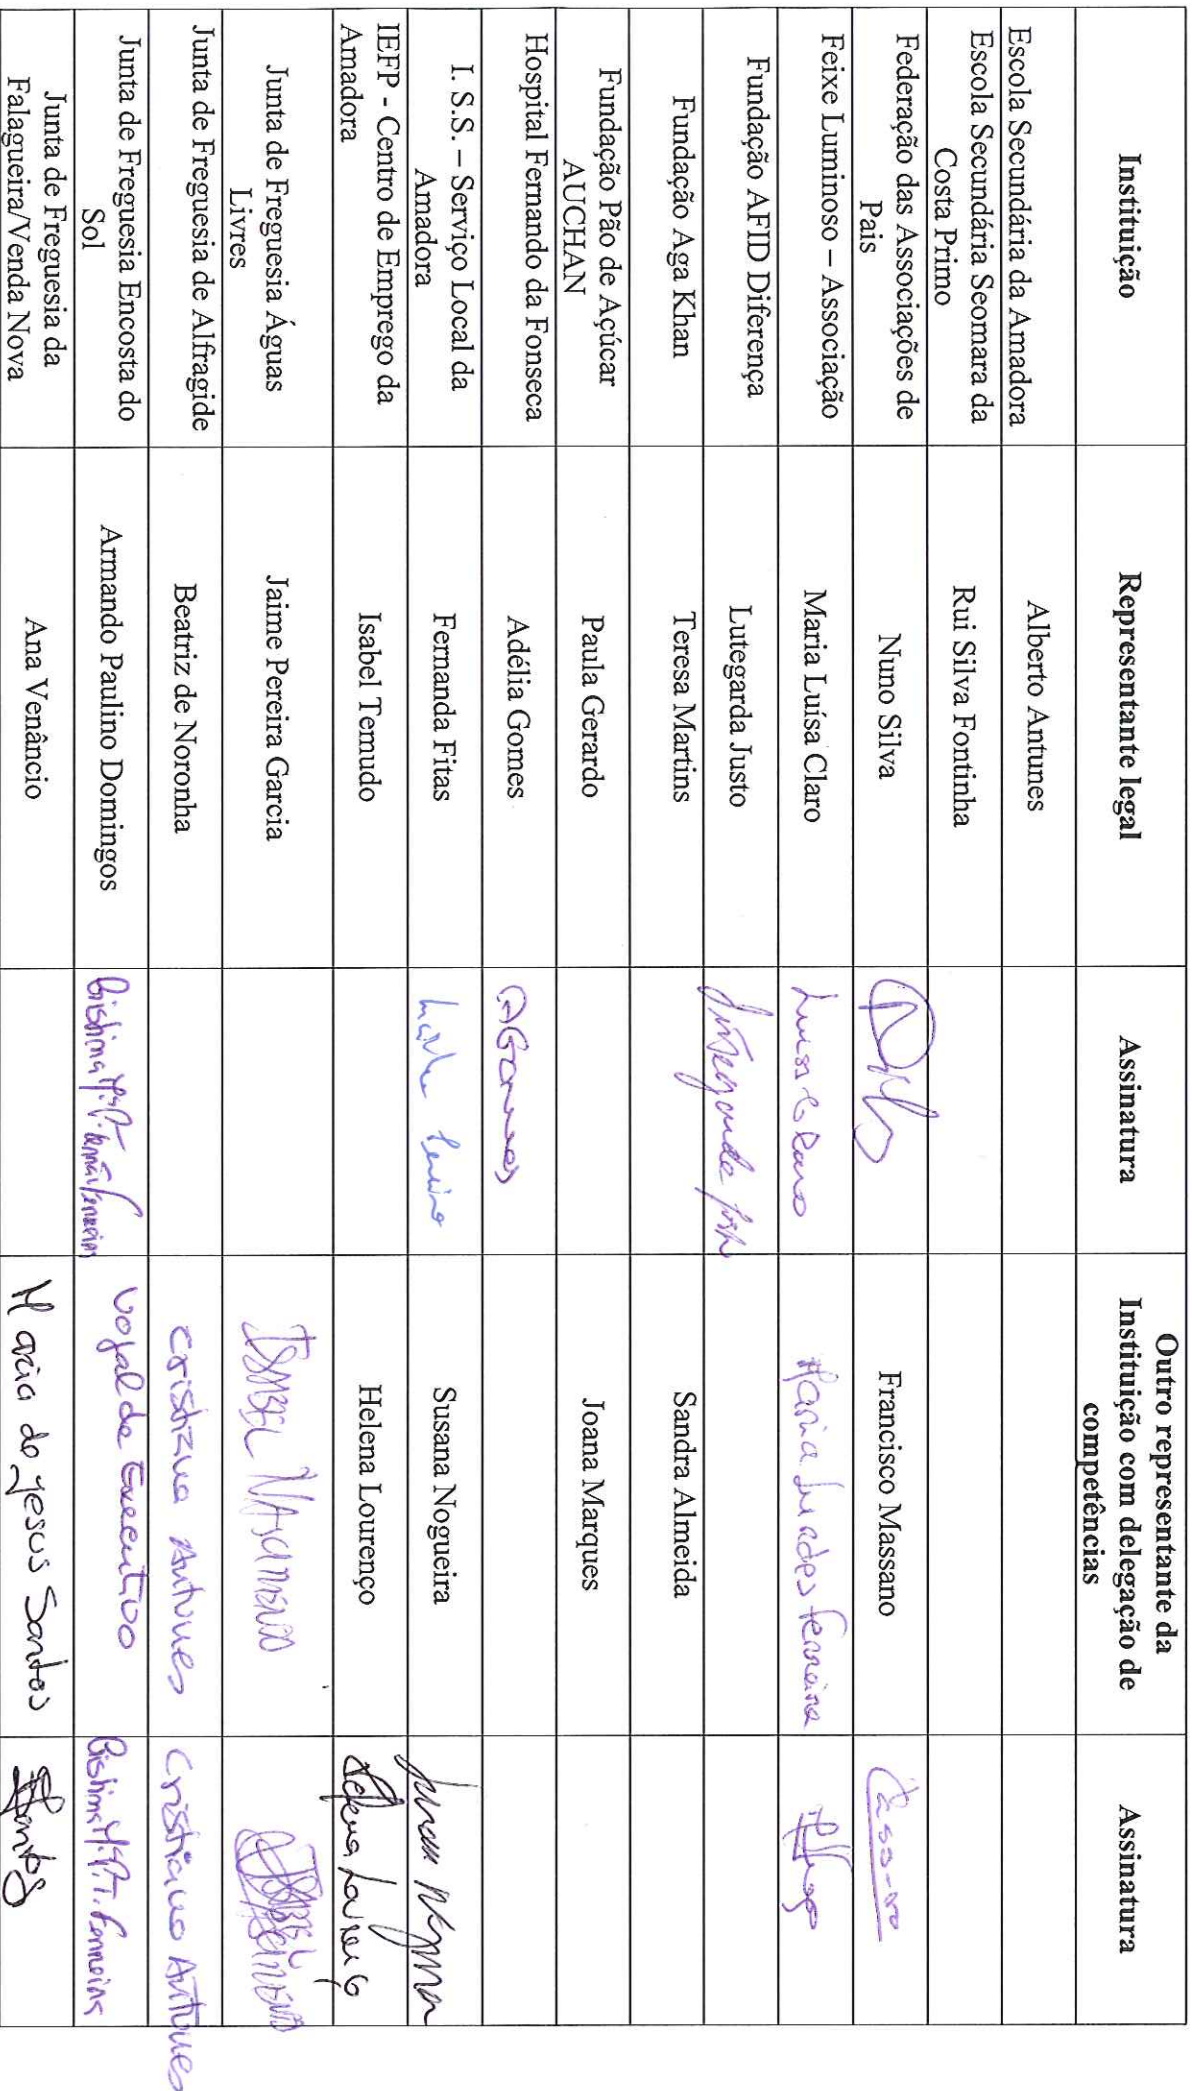 Instituição
Representante legal
Assinatura
Outro representante da
Instituição com delegação de
competências
Assinatura
Escola Secundária da Amadora
Alberto Antunes
Escola Secundária Seomara da
Costa Primo
Rui Silva Fontinha
Federação das Associações de
Pais
Nuno Silva
Francisco Massano
Feixe Luminoso – Associação
Maria Luísa Claro
Maria Lurdes Ferreira
Fundação AFID Diferença
Lutegarda Justo
Lutegarda Justo
Fundação Aga Khan
Teresa Martins
Sandra Almeida
Fundação Pão de Açúcar
AUCHAN
Paula Gerardo
Joana Marques
Hospital Fernando da Fonseca
Adélia Gomes
AGomes
I. S.S. – Serviço Local da
Amadora
Fernanda Fitas
Susana Nogueira
IEFP - Centro de Emprego da
Amadora
Isabel Temudo
Helena Lourenço
Helena Lourenço
Junta de Freguesia Águas
Livres
Jaime Pereira Garcia
ISABEL NASCIMENTO
Junta de Freguesia de Alfragide
Beatriz de Noronha
Cristiano Antunes
Cristiano Antunes
Junta de Freguesia Encosta do
Sol
Armando Paulino Domingos
Vogal do Executivo
Junta de Freguesia da
Falagueira/Venda Nova
Ana Venâncio
Maria de Jesus Santos
Santos